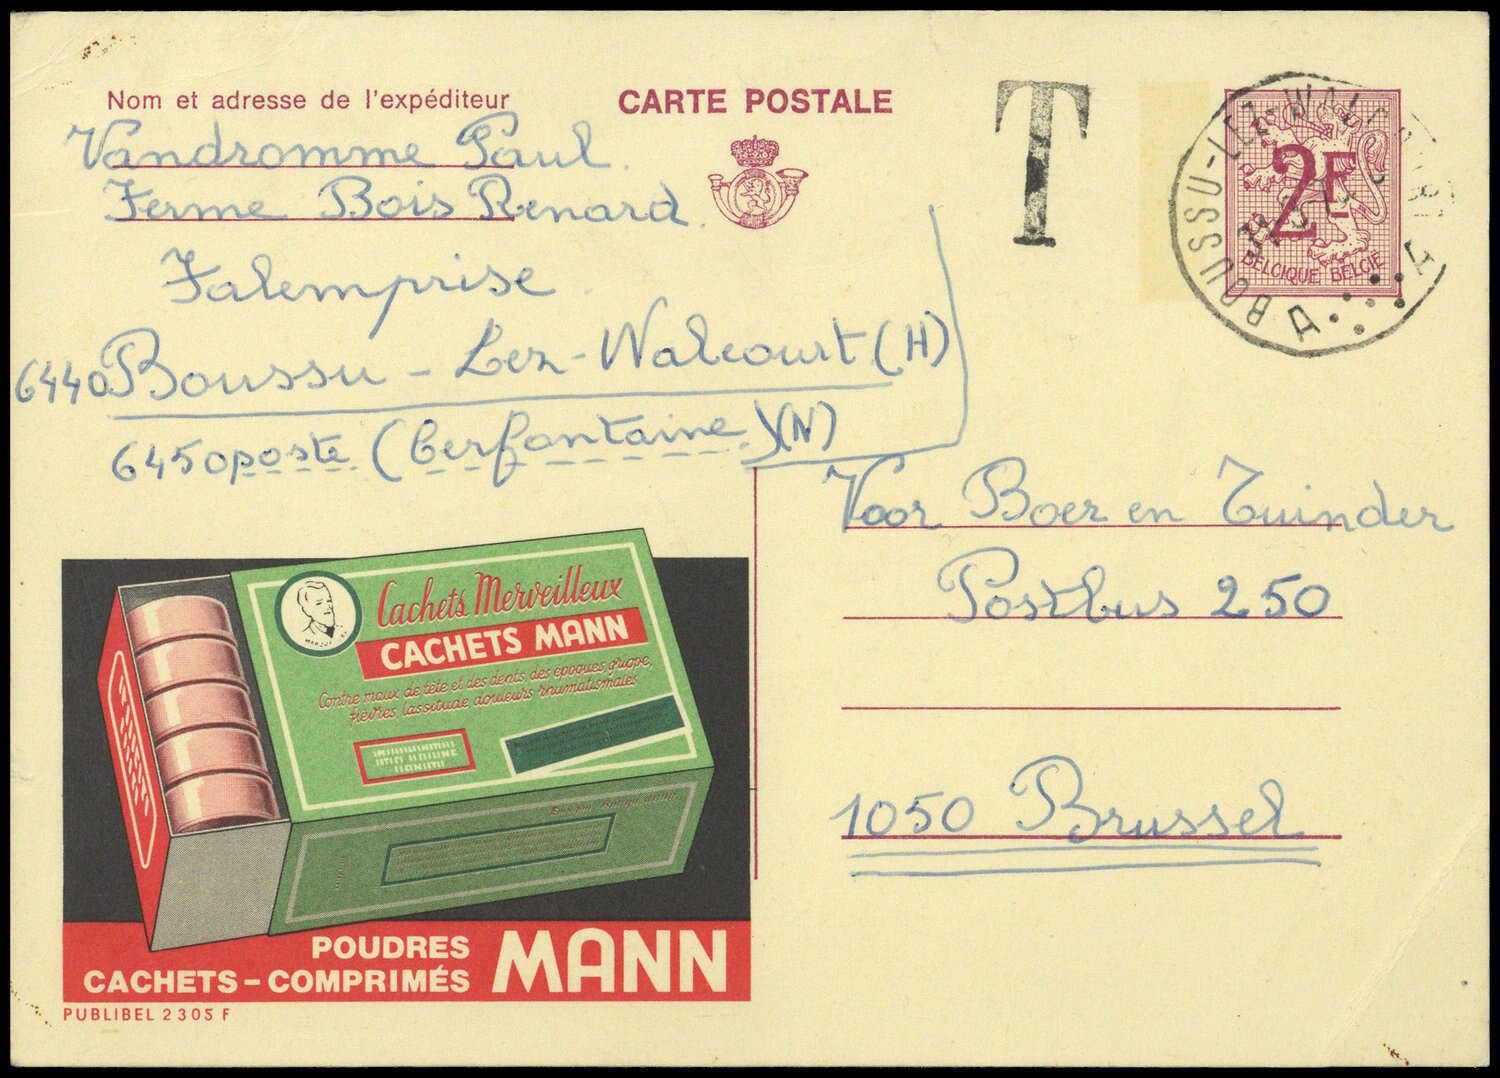 Nom et adresse de l'expéditeur
CARTE POSTALE
T
BOUSSU-LEZ-WALCOURT
A A
2F
BELGIQUE BELGIË
Vandromme Paul.
Ferme Bois Renard.
Falemprise
6440 Boussu-Lez-Walcourt (H)
6450 poste (Cerfontaine)(N)
Voor Boer en Tuinder
Postbus 250
1050 Brussel
Cachets Merveilleux
CACHETS MANN
Contre maux de tête et des dents, des époques, grippe,
fièvres lassitude douleurs rhumatismales
POUDRES
CACHETS-COMPRIMÉS
MANN
PUBLIBEL 2305 F